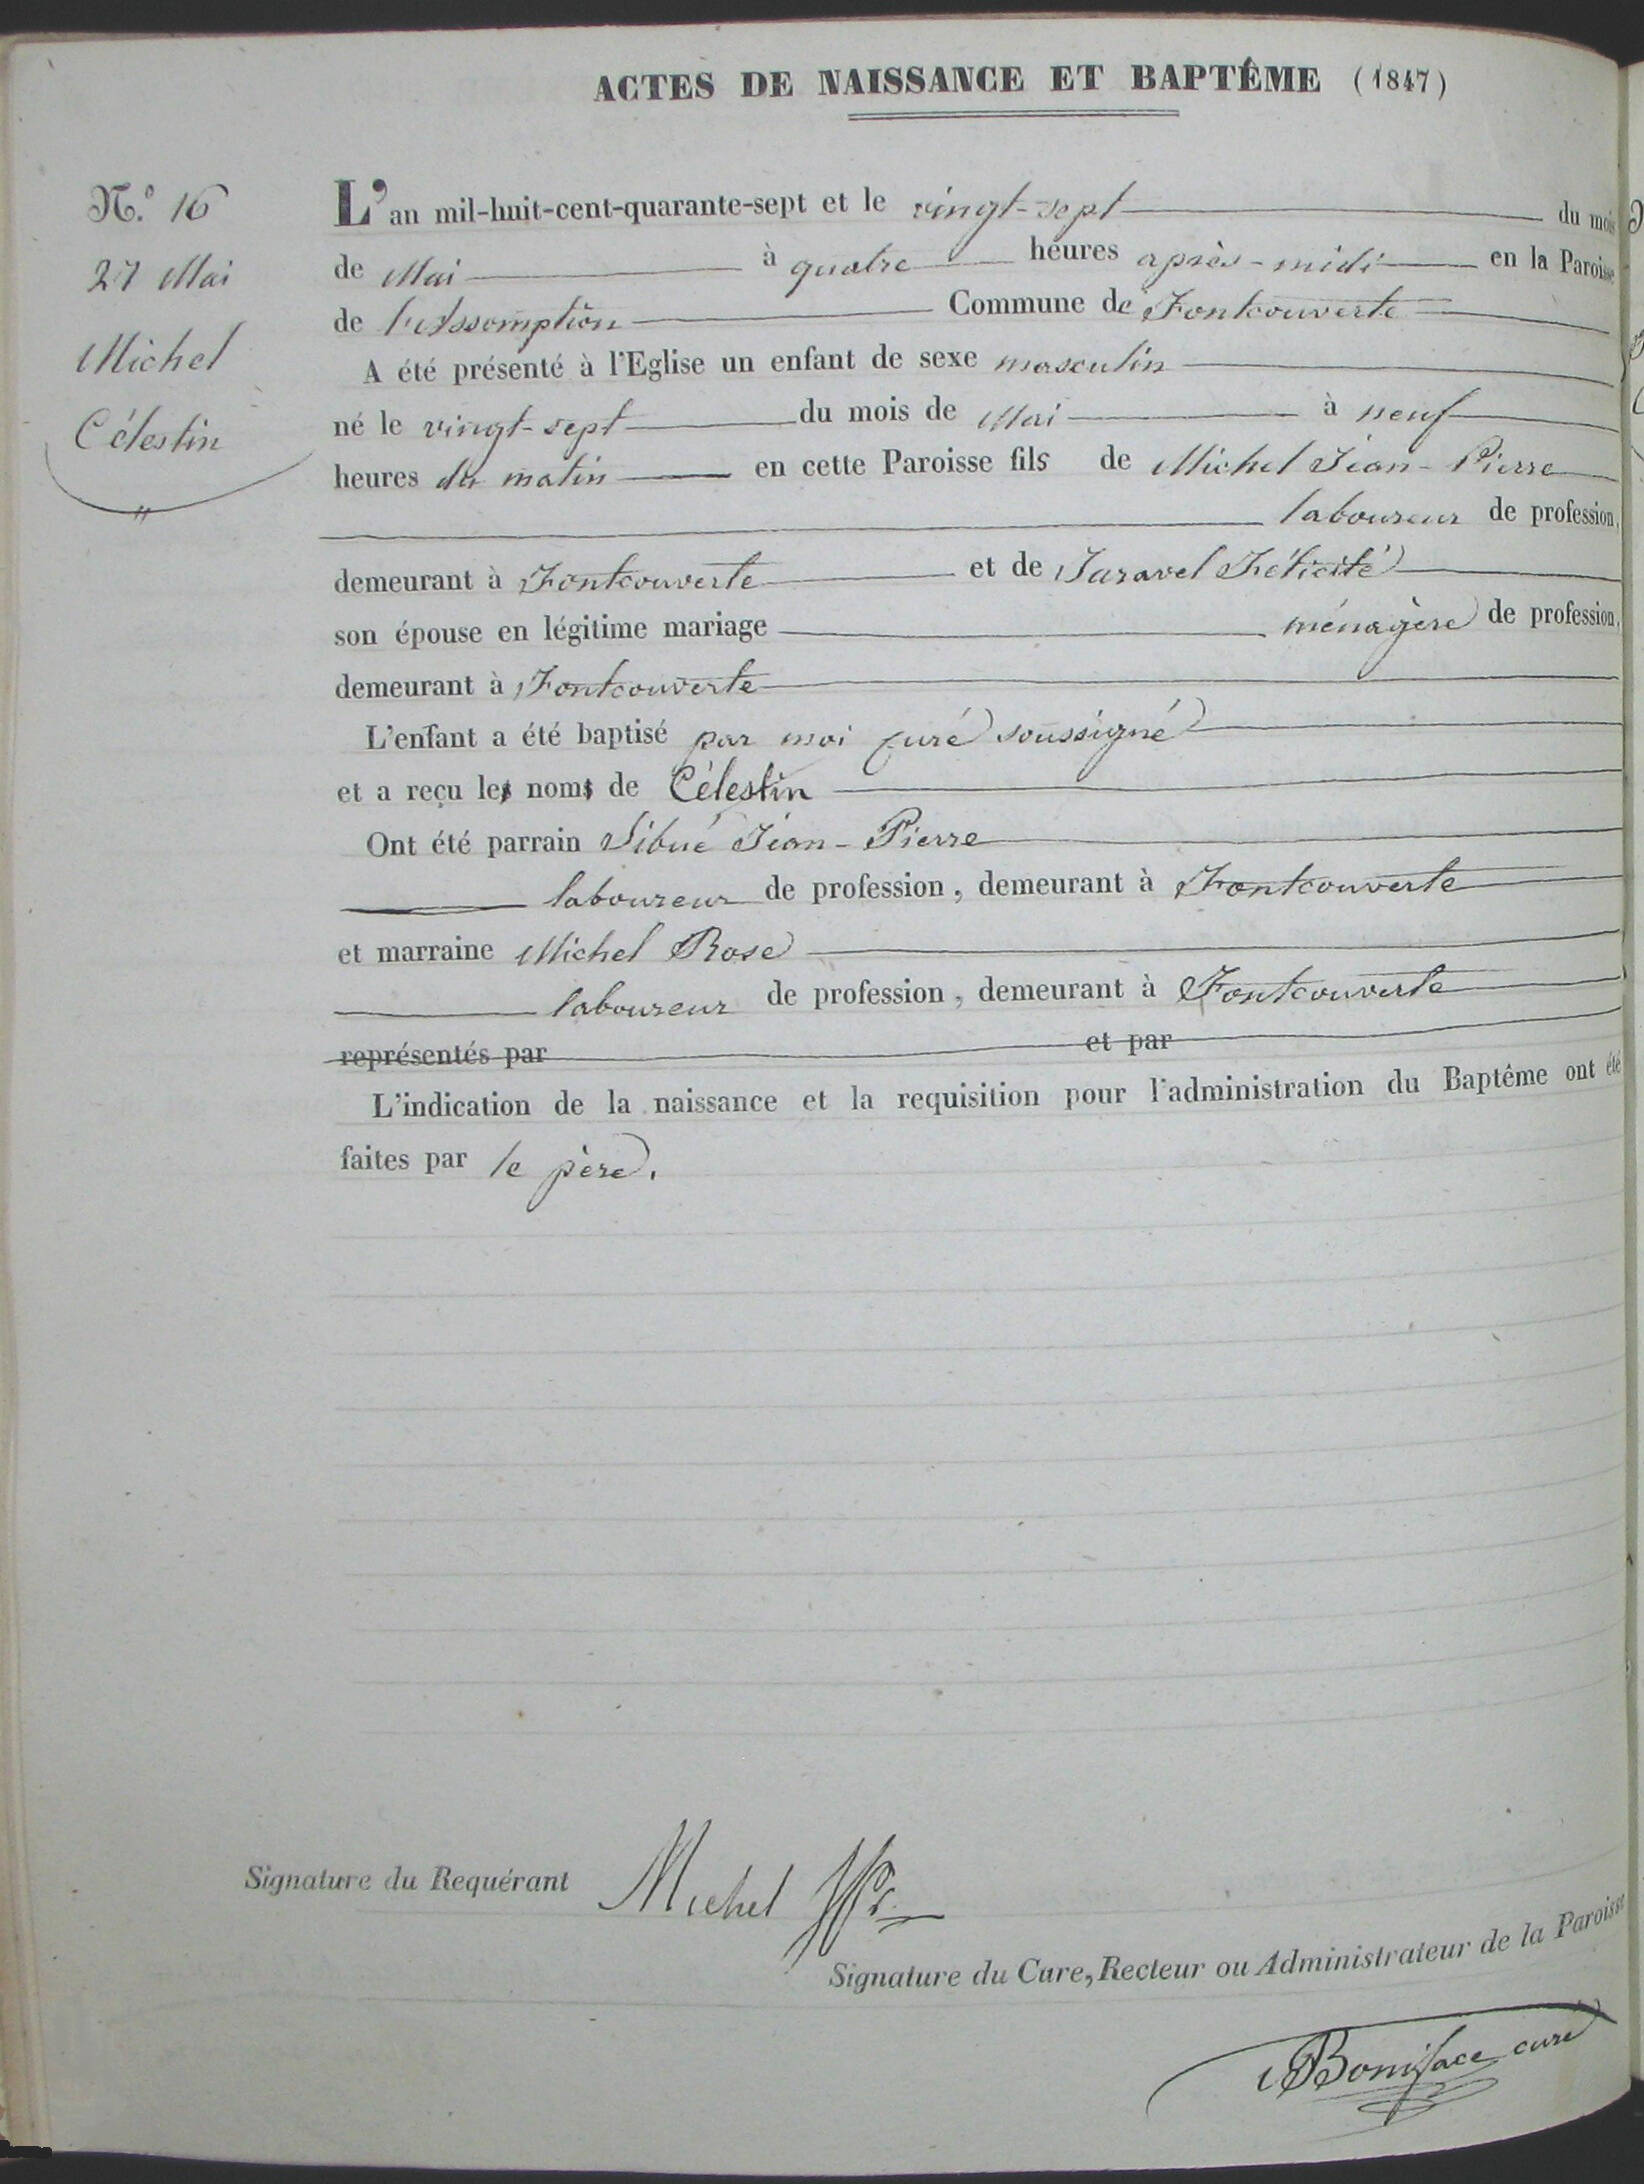 ACTES DE NAISSANCE ET BAPTÊME (1847)
N.º 16
27 Mai
Michel
Célestin
"
L'an mil-huit-cent-quarante-sept et le vingt-sept du mois
de Mai à quatre heures après-midi en la Paroisse
de l'Assomption Commune de Fontcouverte
A été présenté à l'Eglise un enfant de sexe masculin
né le vingt-sept du mois de Mai à neuf
heures du matin en cette Paroisse fils de Michel Jean-Pierre
laboureur de profession,
demeurant à Fontcouverte et de Jaravel Félicité
son épouse en légitime mariage ménagère de profession,
demeurant à Fontcouverte
L'enfant a été baptisé par moi curé soussigné
et a reçu les noms de Célestin
Ont été parrain Sibué Jean-Pierre
laboureur de profession, demeurant à Fontcouverte
et marraine Michel Rose
laboureur de profession, demeurant à Fontcouverte
représentés par et par
L'indication de la naissance et la requisition pour l'administration du Baptême ont été
faites par le père.
Signature du Requérant Michel
Signature du Curé, Recteur ou Administrateur de la Paroisse
Boniface curé